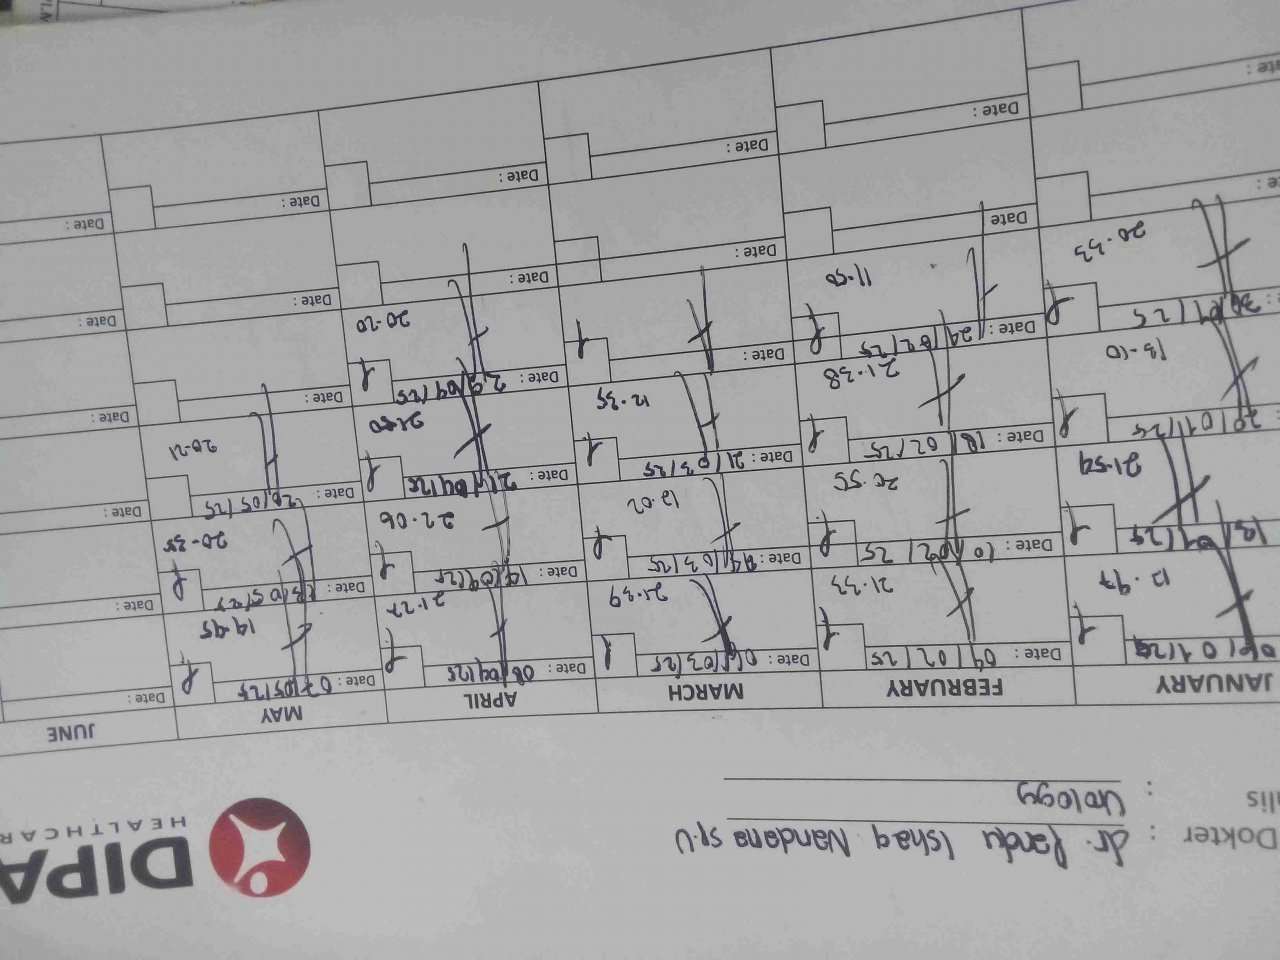 DIPA
HEALTHCAR
Dokter : dr. Pandu Ishaq Nandana Sp.U
lis : Urology
JANUARY FEBRUARY MARCH APRIL MAY JUNE
Date : 04/02/25 Date : 06/03/25 Date : 08/04/25 Date : 07/05/25 Date :
12.47 21.33 21.39 21.27 14.45
Date : 10/02/25 Date : 14/03/25 Date : 14/04/25 Date : 13/05/25 Date :
21.54 20.55 12.02 22.06 20.35
20/01/25 Date : 18/02/25 Date : 21/03/25 Date : 21/04/25 Date : 20/05/25 Date :
13.10 21.38 12.35 21.50 20.21
30/01/25 Date : 24/02/25 Date : Date : 29/04/25 Date : Date :
20.33 11.50 20.20
Date Date : Date : Date : Date :
Date : Date : Date : Date : Date :